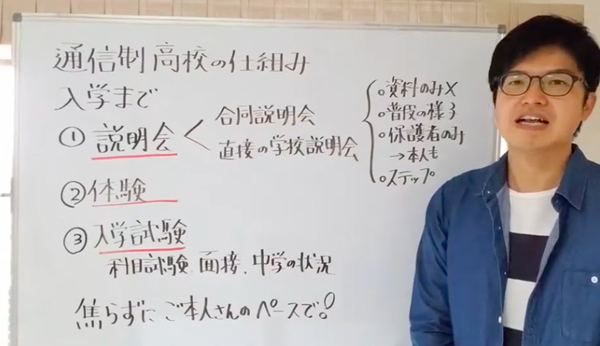 通信制高校の仕組み
入学まで
① 説明会
合同説明会
直接の学校説明会
○資料のみ×
○普段の様子
○保護者のみ
→本人も
○ステップ
② 体験
③ 入学試験
科目試験、面接、中学の状況
焦らずにご本人さんのペースで!